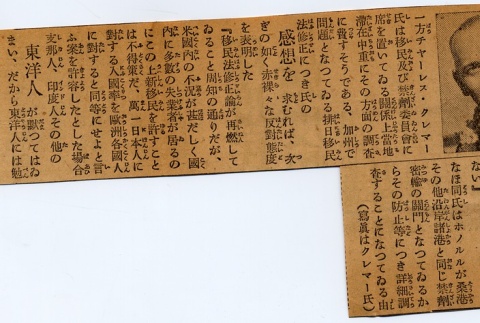 一方チャーレス・クレマー
氏は移民及び禁劑委員會に
席を置いてゐる關係上當地
滯在中重にその方面の調査
に費すそうである、加州で
問題となつてゐる排日移民
法修正につき氏の
感想を 求むれば、次
ぎの如く赤裸々な反對態度
を表明した
『移民法修正論が再燃して
ゐること周知の通りだが、
米國內の不況が甚だしく國
內に多數の失業者が居るの
にこの上新移民を許すこと
は不得策だ、萬一日本人に
對する入率を歐洲各國人
に對すると同等にせよと言
ふ案を許容したとした場合
支那人、印度人その他の
東洋人 が默つてはゐ
まい、だから東洋人には勉
ない』
なほ同氏はホノルルが桑港
その他沿岸諸港と同じ禁劑
密輸の關門となつてゐるか
らその防止等につき詳細調
査することになつてゐる由
(寫眞はクレマー氏)